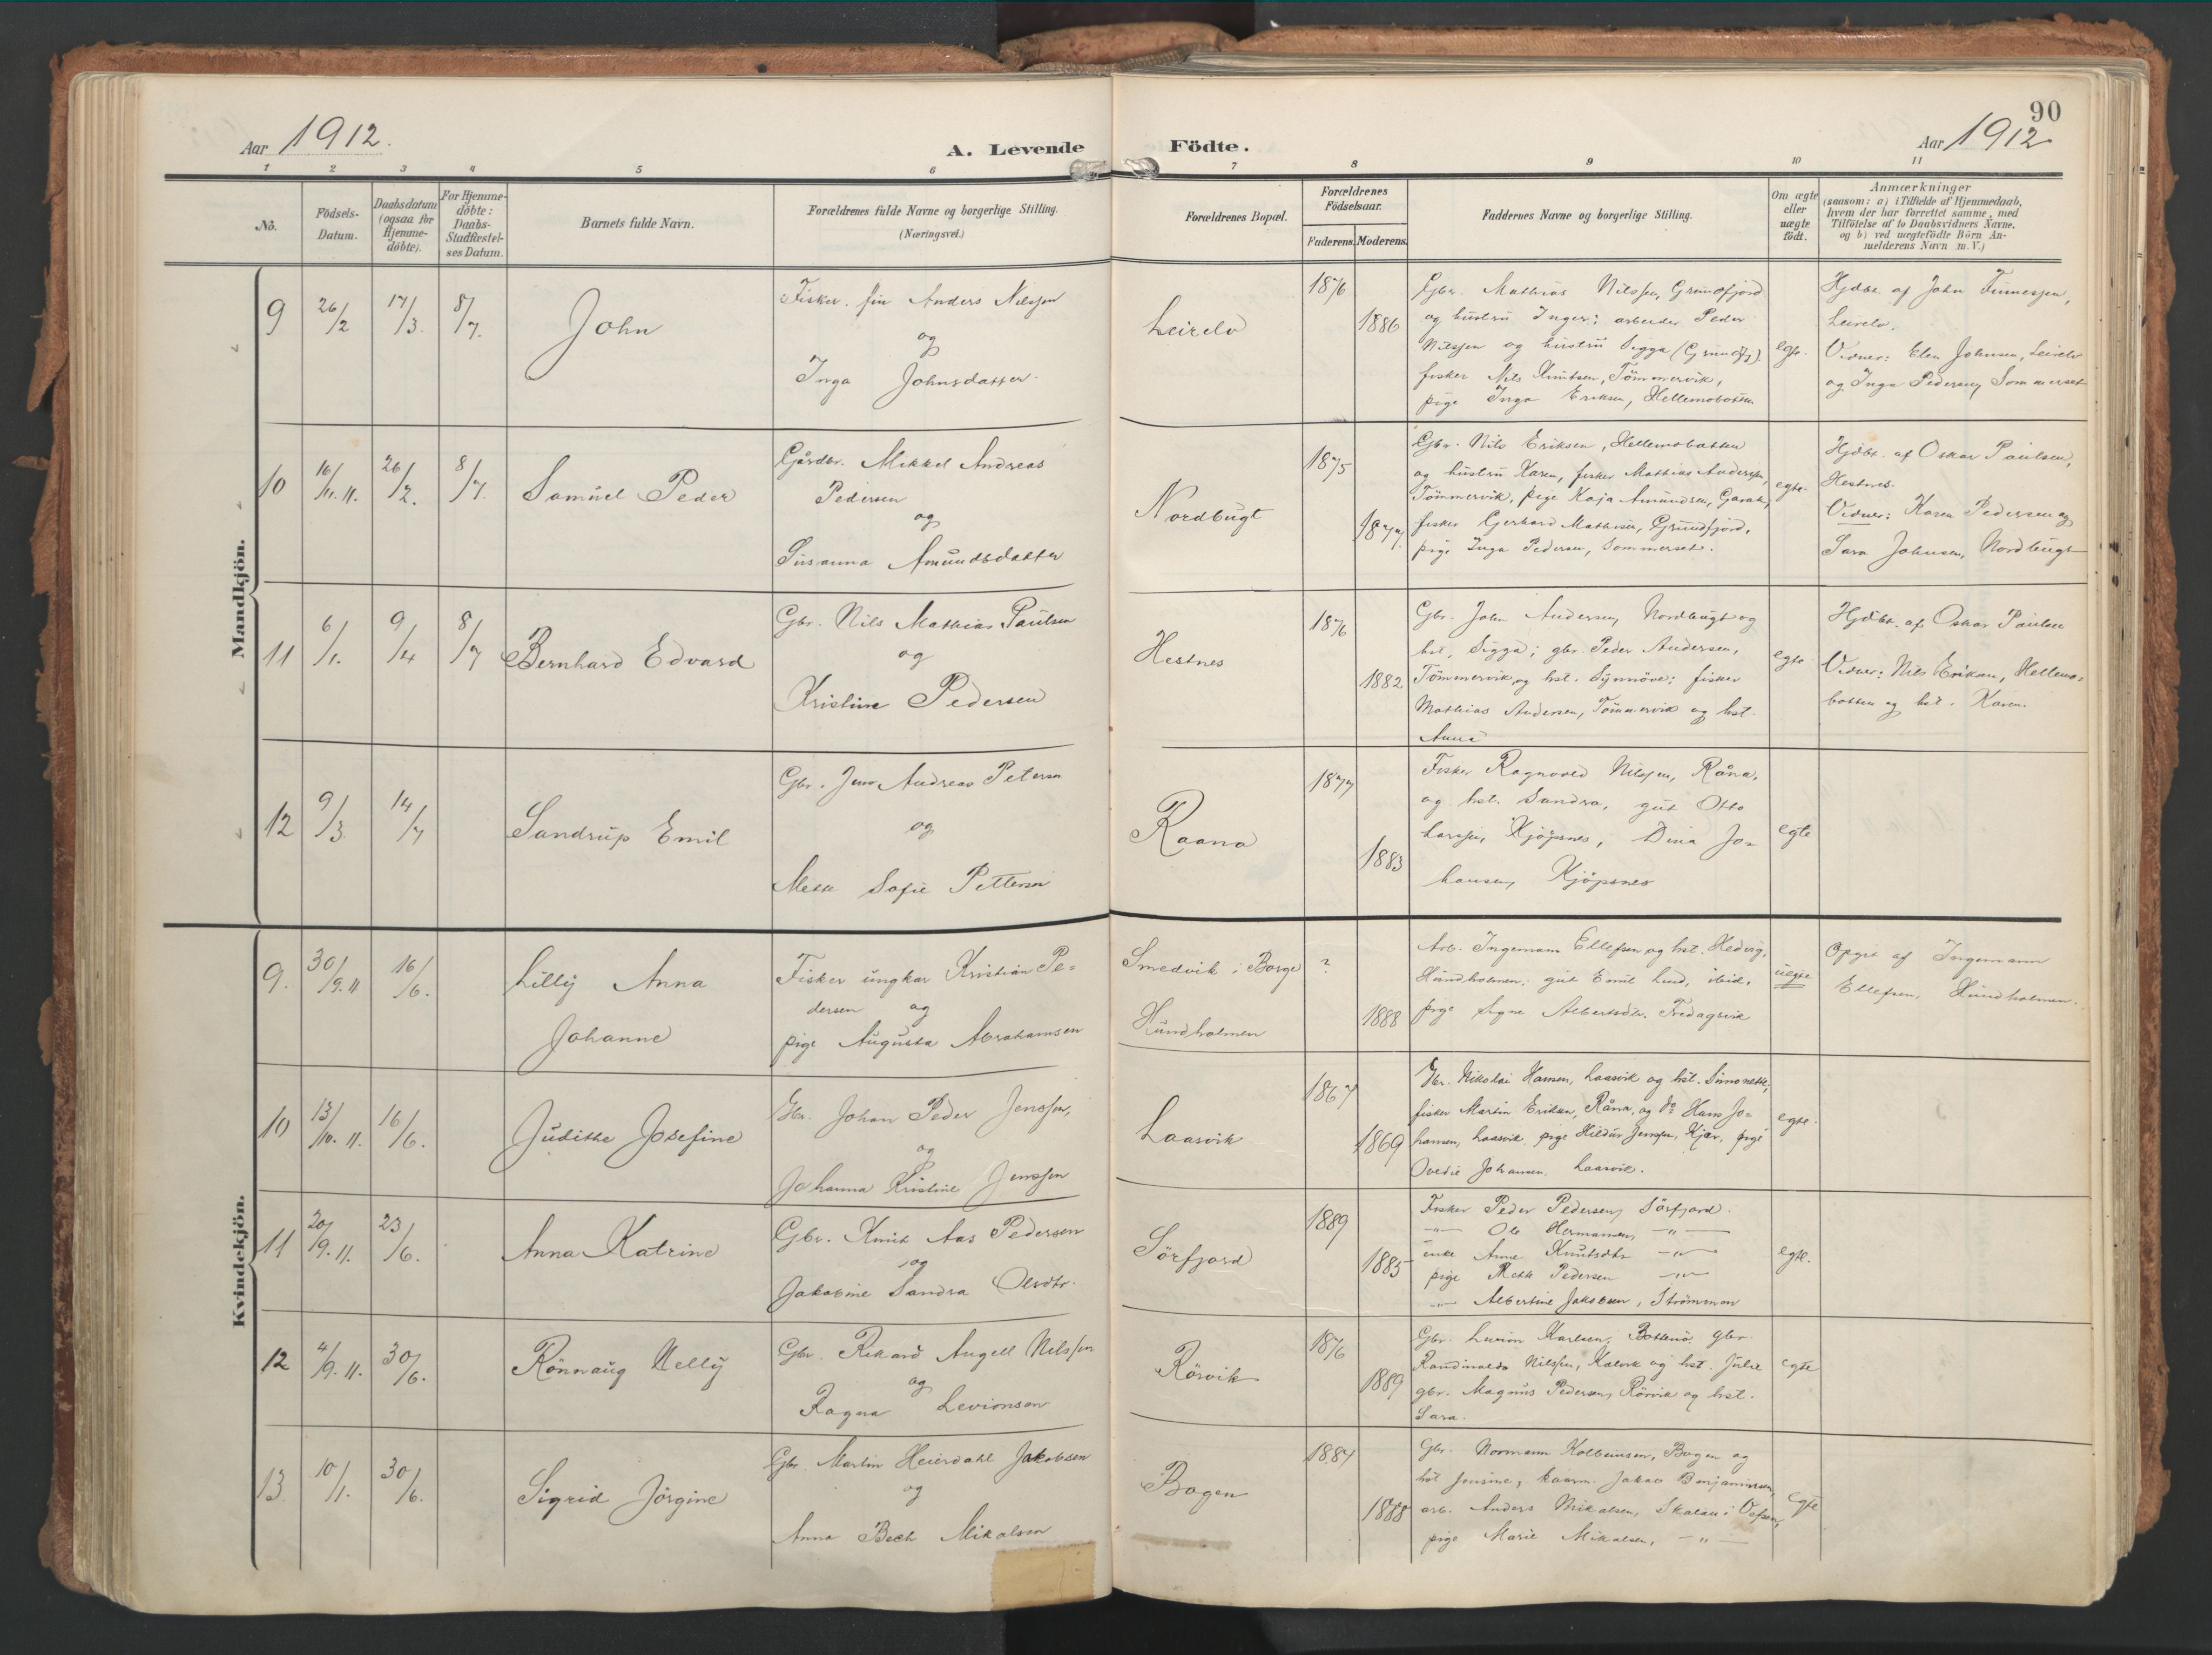 90
Aar 1912.
A. Levende Födte.
Aar 1912
1 2 3 4 5 6 7 8 9 10 11
Nö.
Födsels-
Datum.
Daabsdatum
(ogsaa for
Hjemme-
döbte).
For Hjemme-
döbte:
Daabs-
Stadfæstel-
ses Datum.
Barnets fulde Navn.
Forældrenes fulde Navne og borgerlige Stilling.
(Næringsvei.)
Forældrenes Bopæl.
Forældrenes
Födselsaar.
Faderens. Moderens.
Faddernes Navne og borgerlige Stilling.
Om ægte
eller
uægte
födt.
Anmærkninger
(saasom: a) i Tilfælde af Hjemmedaab,
hvem der har forrettet samme, med
Tilföielse af to Daabsvidners Navne.
og b) ved uægtefödte Börn An-
melderens Navn m. V.)
Mandkjön.
9
26/2
17/3.
8/7.
John
Fisker. fin Anders Nilssen
og
Inga Johnsdatter.
Leirelv
1876
1886
Gbr. Mathias Nilssen, Grundfjord
og hustru Inger; arbeider Peder
Nilssen og hustru Sigga (Grundfj).
fisker Nils Knutsen, Tömmervik,
pige Inga Eriksen, Hellemobotten
egte.
Hjdbt. af John
Leirelv.
Vidner: Elen Johnsen, Leirelv
og Inga Pedersen, Sommerset
10
16/11. 11.
26/2.
8/7.
Samuel Peder
Gårdbr. Mikkel Andreas
Pedersen
og
Susanna Amundsdatter
Nordbugt
1875
1877.
Gbr. Nils Eriksen, Hellemobotten
og hustru Karen, fisker Mathias Andersen,
Tömmervik, pige Kaja Amundsen,
fisker Gerhard Mathisen, Grundfjord,
pige Inga Pedersen, Sommerset.
egte.
Hjdbt. af Oskar Paulsen,
Hestnes.
Vidner: Karen Pedersen og
Sara Johnsen, Nordbugt
11
6/1.
9/4
8/7
Bernhard Edvard
Gbr. Nils Mathias Paulsen
og
Kristine Pedersen
Hestnes
1876
1882
Gbr. John Andersen, Nordbugt og
hst. Sigga; gbr. Peder Andersen,
Tömmervik og hst. Synnöve; fisker
Mathias Andersen, Tömmervik og hst.
Anna
egte
Hjdbt. af Oskar Paulsen
Vidner: Nils Eriksen, Hellemo=
botten og hst. Karen.
12
9/3.
14/7
Sandrup Emil
Gbr. Jens Andreas Petersen
og
Mette Sofie Pettersen
Raana
1877
1883
Fisker Ragnvald Nilssen, Råna,
og hst. Sandra, gut Otto
Larssen, Kjöpsnes, Dina Jo=
hansen, Kjöpsnes
egte
Kvindekjön.
9.
30/9. 11
16/6.
Lilly Anna
Johanne
Fisker ungkar Kristian Pe=
dersen og
pige Augusta Abrahamsen
Smedvik i Borge
Hundholmen
?
1888
Arb. Ingemann Ellefsen og hst. Hedvig,
Hundholmen; gut Emil Lund, ibid,
pige Signe Albertsdtr. Fredagsvik
uegte
Opgit af Ingemann
Ellefsen, Hundholmen.
10
13/10. 11.
16/6.
Judithe Josefine
Gbr. Johan Peder Jenssen,
og
Johanna Kristine Jenssen
Laasvik
1867
1869
Gbr. Nikolai Hansen, Laasvik og hst. Simonette;
fisker Martin Eriksen, Råna, og do Hans Jo=
hansen, Laasvik, pige Hildur Jenssen, Kjær, pige
Ovedie Johansen, Laasvik.
egte.
11
20/9. 11.
23/6.
Anna Katrine
Gbr. Knut Aas Pedersen
og
Jakobine Sandra Olsdtr.
Sörfjord
1889
1885
Fisker Peder Pedersen, Sörfjord.
—"— Ole Hermansen, —"—
enke Anne Knutsdtr —"—
pige Mette Pedersen —"—
—"— Albertine Jakobsen, Strömmen
egte.
12
4/9. 11.
30/6.
Rönnaug Nelly
Gbr. Rikard Angell Nilssen
og
Ragna Levionsen
Rörvik
1876
1889
Gbr. Levion Karlsen, gbr.
Randinaldo Nilssen, Kalvik og hst. Julie
gbr. Magnus Pedersen, Rörvik og hst.
Sara.
egte
13.
10/1.
30/6.
Sigrid Jörgine
Gbr. Martin Heierdahl Jakobsen
og
Anna Bech Mikalsen
Bogen
1884
1888
Gbr. Normann Kolbeinsen, Bogen og
hst Jensine, kaarm. Jakob Benjaminsen,
arb. Anders Mikalsen, i Vefsen,
pige Marie Mikalsen, —"—
egte